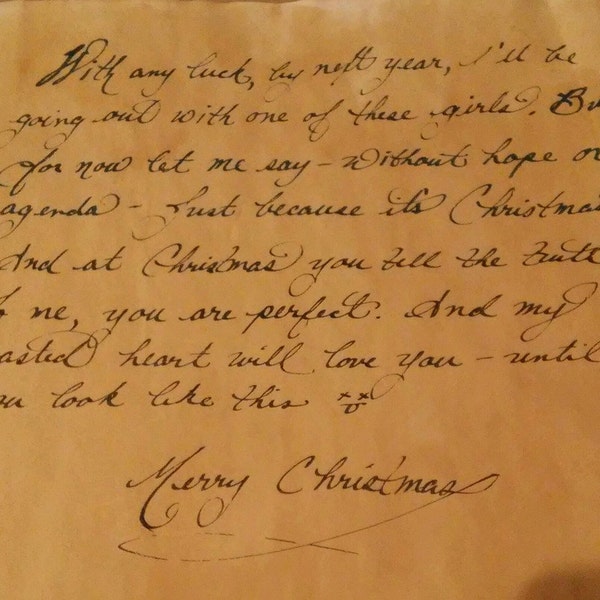 With any luck, by next year, I'll be
going out with one of these girls. Bu
for now let me say – without hope or
agenda – Just because it's Christmas
And at Christmas you tell the truth
o me, you are perfect. And my
asted heart will love you – until
ou look like this
Merry Christmas